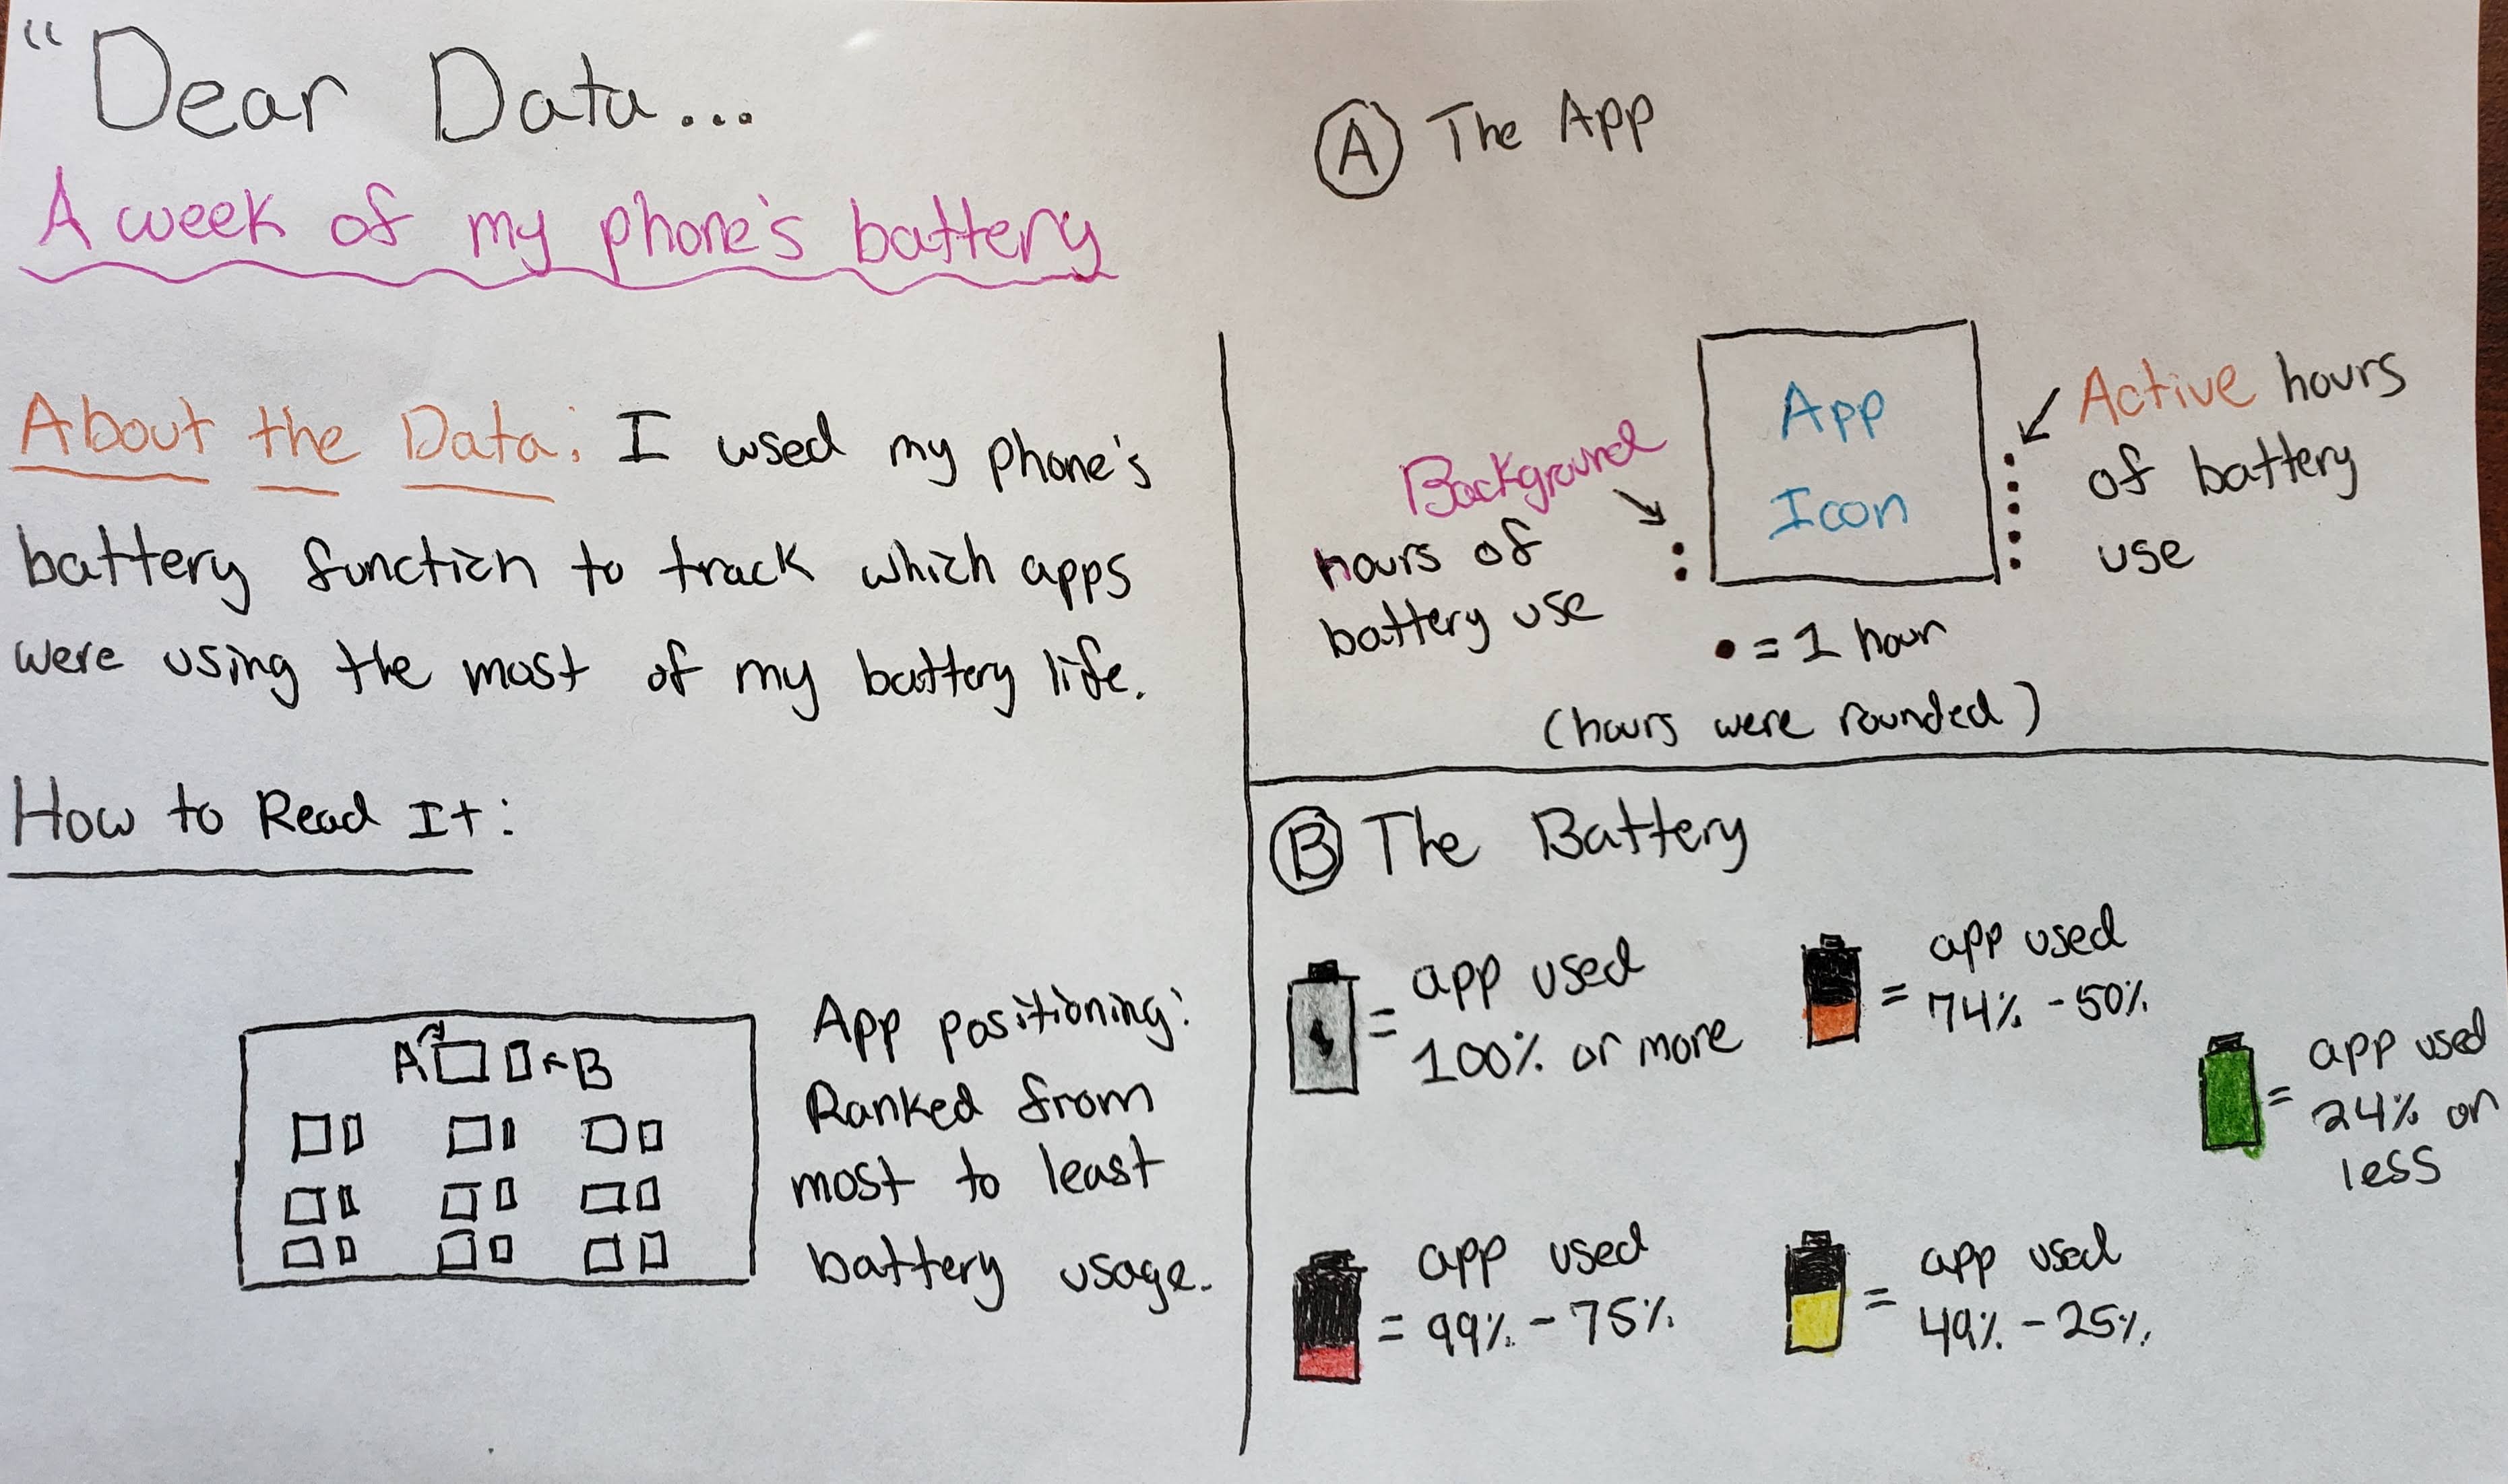 "Dear Data...
A week of my phone's battery
About the Data: I used my phone's
battery function to track which apps
were using the most of my battery life.
How to Read It:
A B
App positioning:
Ranked from
most to least
battery usage.
A The App
App
Icon
Background
hours of
battery use
Active hours
of battery
use
• = 1 hour
(hours were rounded)
B The Battery
= app used
100% or more
= app used
74% - 50%
= app used
24% or
less
= app used
99% - 75%
= app used
49% - 25%